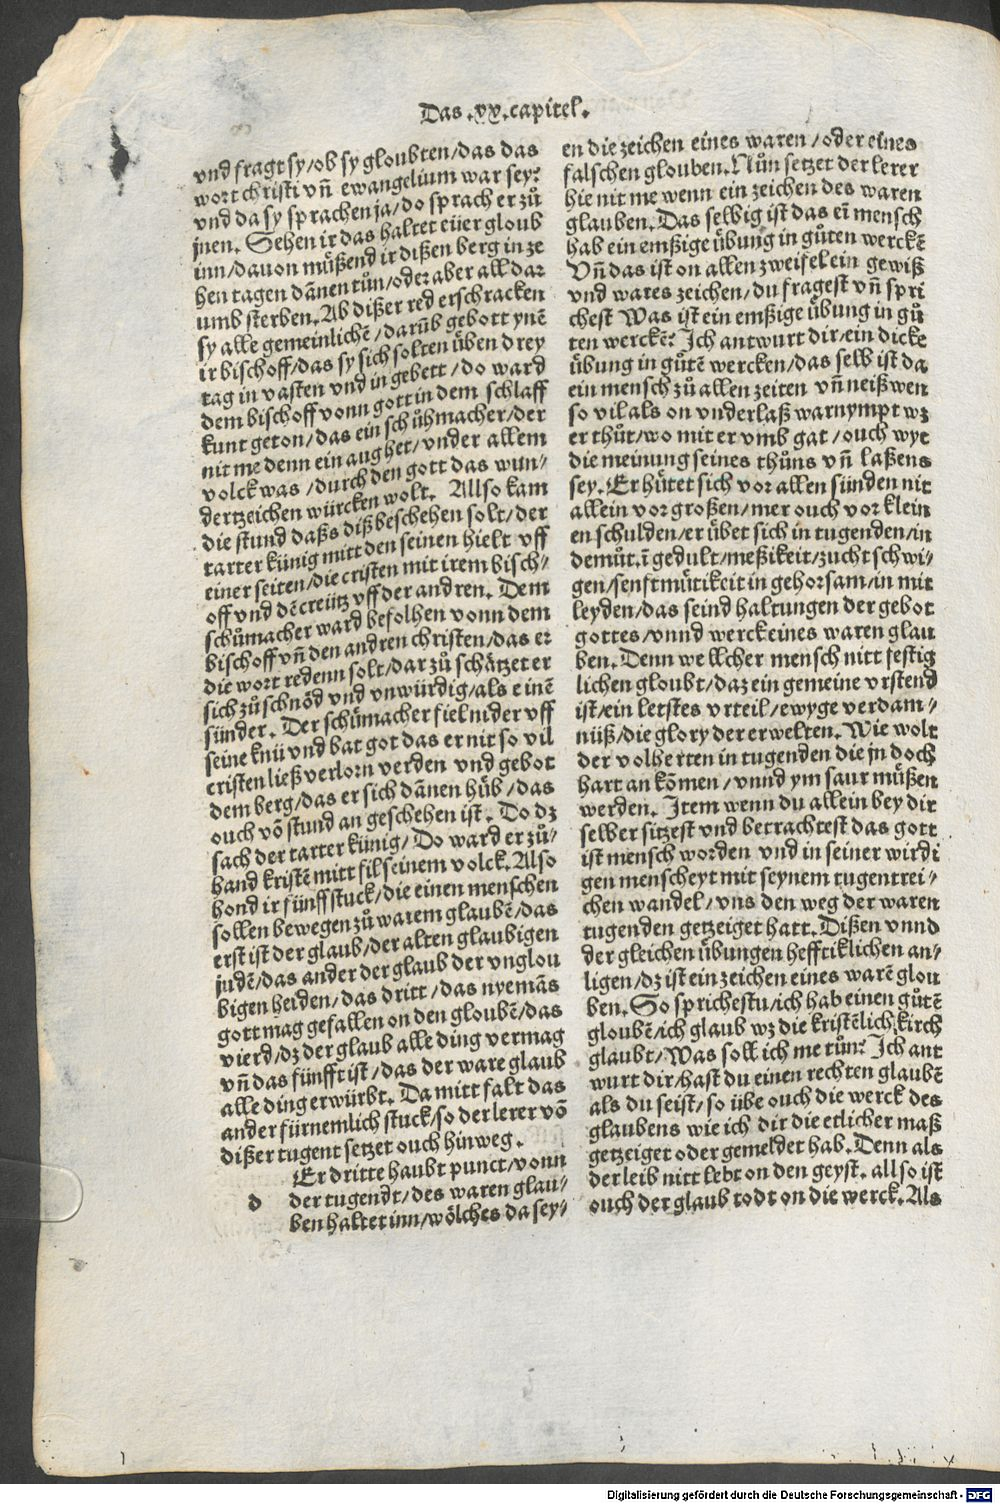 Das .xx. capitel.
vnd fragt sy/ob sy gloubten/das das
wort christi vñ ewangelium war sey?
vnd da sy sprachen ja/do sprach er zů
jnen. Sehen ir das haltet eüer gloub
inn/dauon müßend ir dißen berg in ze
hen tagen dãnen tůn/oder aber all dar
umb sterben. Ab dißer red erschracken
sy alle gemeinlichẽ/darũb gebott ynẽ
ir bischoff/das sy sich solten üben drey
tag in vasten vnd in gebett/do ward
dem bischoff vonn gott in dem schlaff
kunt geton/das ein schůhmacher/der
nit me denn ein aug het/vnder allem
volck was/durch den gott das wun/
dertzeichen würcken wolt. Allso kam
die stund daßs diß beschehen solt/der
tarter künig mitt den seinen hielt vff
einer seiten/die cristen mit irem bisch/
off vnd dẽ creütz vff der andren. Dem
schůmacher ward befolhen vonn dem
bischoff vñ den andren christen/das er
die wort redenn solt/dar zů schätzet er
sich zů schnöd vnd vnwürdig/als einẽ
sünder. Der schůmacher fiel nider vff
seine knü vnd bat got das er nit so vil
cristen ließ verlorn verden vnd gebot
dem berg/das er sich dãnen hüb/das
ouch võ stund an geschehen ist. To dz
sach der tarter künig/Do ward er zů/
hand kristẽ mitt fil seinem volck. Also
hond ir fünff stuck/die einen menschen
sollen bewegen zů warem glaubẽ/das
erst ist der glaub/der alten glaubigen
judẽ/das ander der glaub der vnglou
bigen heiden/das dritt/das nyemãs
gott mag gefallen on den gloubẽ/das
vierd/dz der glaub alle ding vermag
vñ das fünfft ist/das der ware glaub
alle ding erwürbt. Da mitt falt das
ander fürnemlich stuck/so der lerer võ
dißer tugent setzet ouch hinweg.
Er dritte haubt punct/vonn
d der tugendt/des waren glau/
ben haltet inn/wölches da sey/
en die zeichen eines waren/oder eines
falschen glouben. Nůn setzet der lerer
hie nit me wenn ein zeichen des waren
glauben. Das selbig ist das eĩ mensch
hab ein emßige übung in gůten werckẽ
Vñ das ist on allen zweifel ein gewiß
vnd wares zeichen/du fragest vñ spri
chest Was ist ein emßige übung in gů
ten werckẽ? Ich antwurt dir/ein dicke
übung in gůtẽ wercken/das selb ist da
ein mensch zů allen zeiten vñ neißwen
so vil als on vnderlaß warnympt wz
er thůt/wo mit er vmb gat/ouch wye
die meinung seines thůns vñ laßens
sey. Er hütet sich vor allen sünden nit
allein vor großen/mer ouch vor klein
en schulden/er übet sich in tugenden/in
demůt/ĩ gedult/meßikeit/zucht schwi/
gen/senftmütikeit in gehorsam/in mit
leyden/das seind haltungen der gebot
gottes/vnnd werck eines waren glau
ben. Denn wellcher mensch nitt festig
lichen gloubt/daz ein gemeine vrstend
ist/ein letstes vrteil/ewyge verdam/
nüß/die glory der erwelten. Wie wolt
der volherten in tugenden die jn doch
hart an kõmen/vnnd ym saur müßen
werden. Item wenn du allein bey dir
selber sitzest vnd betrachtest das gott
ist mensch worden vnd in seiner wirdi
gen menscheyt mit seynem tugentrei/
chen wandel/vns den weg der waren
tugenden getzeiget hatt. Dißen vnnd
der gleichen übungen hefftiklichen an/
ligen/dz ist ein zeichen eines warẽ glou
ben. So sprichestu/ich hab einen gůtẽ
gloubẽ/ich glaub wz die kristẽlich kirch
glaubt/Was soll ich me tůn? Ich ant
wurt dir/hast du einen rechten glaubẽ
als du seist/so übe ouch die werck des
glaubens wie ich dir die etlicher maß
getzeiget oder gemeldet hab. Denn als
der leib nitt lebt on den geyst. allso ist
ouch der glaub todt on die werck. Als
Digitalisierung gefördert durch die Deutsche Forschungsgemeinschaft - DFG